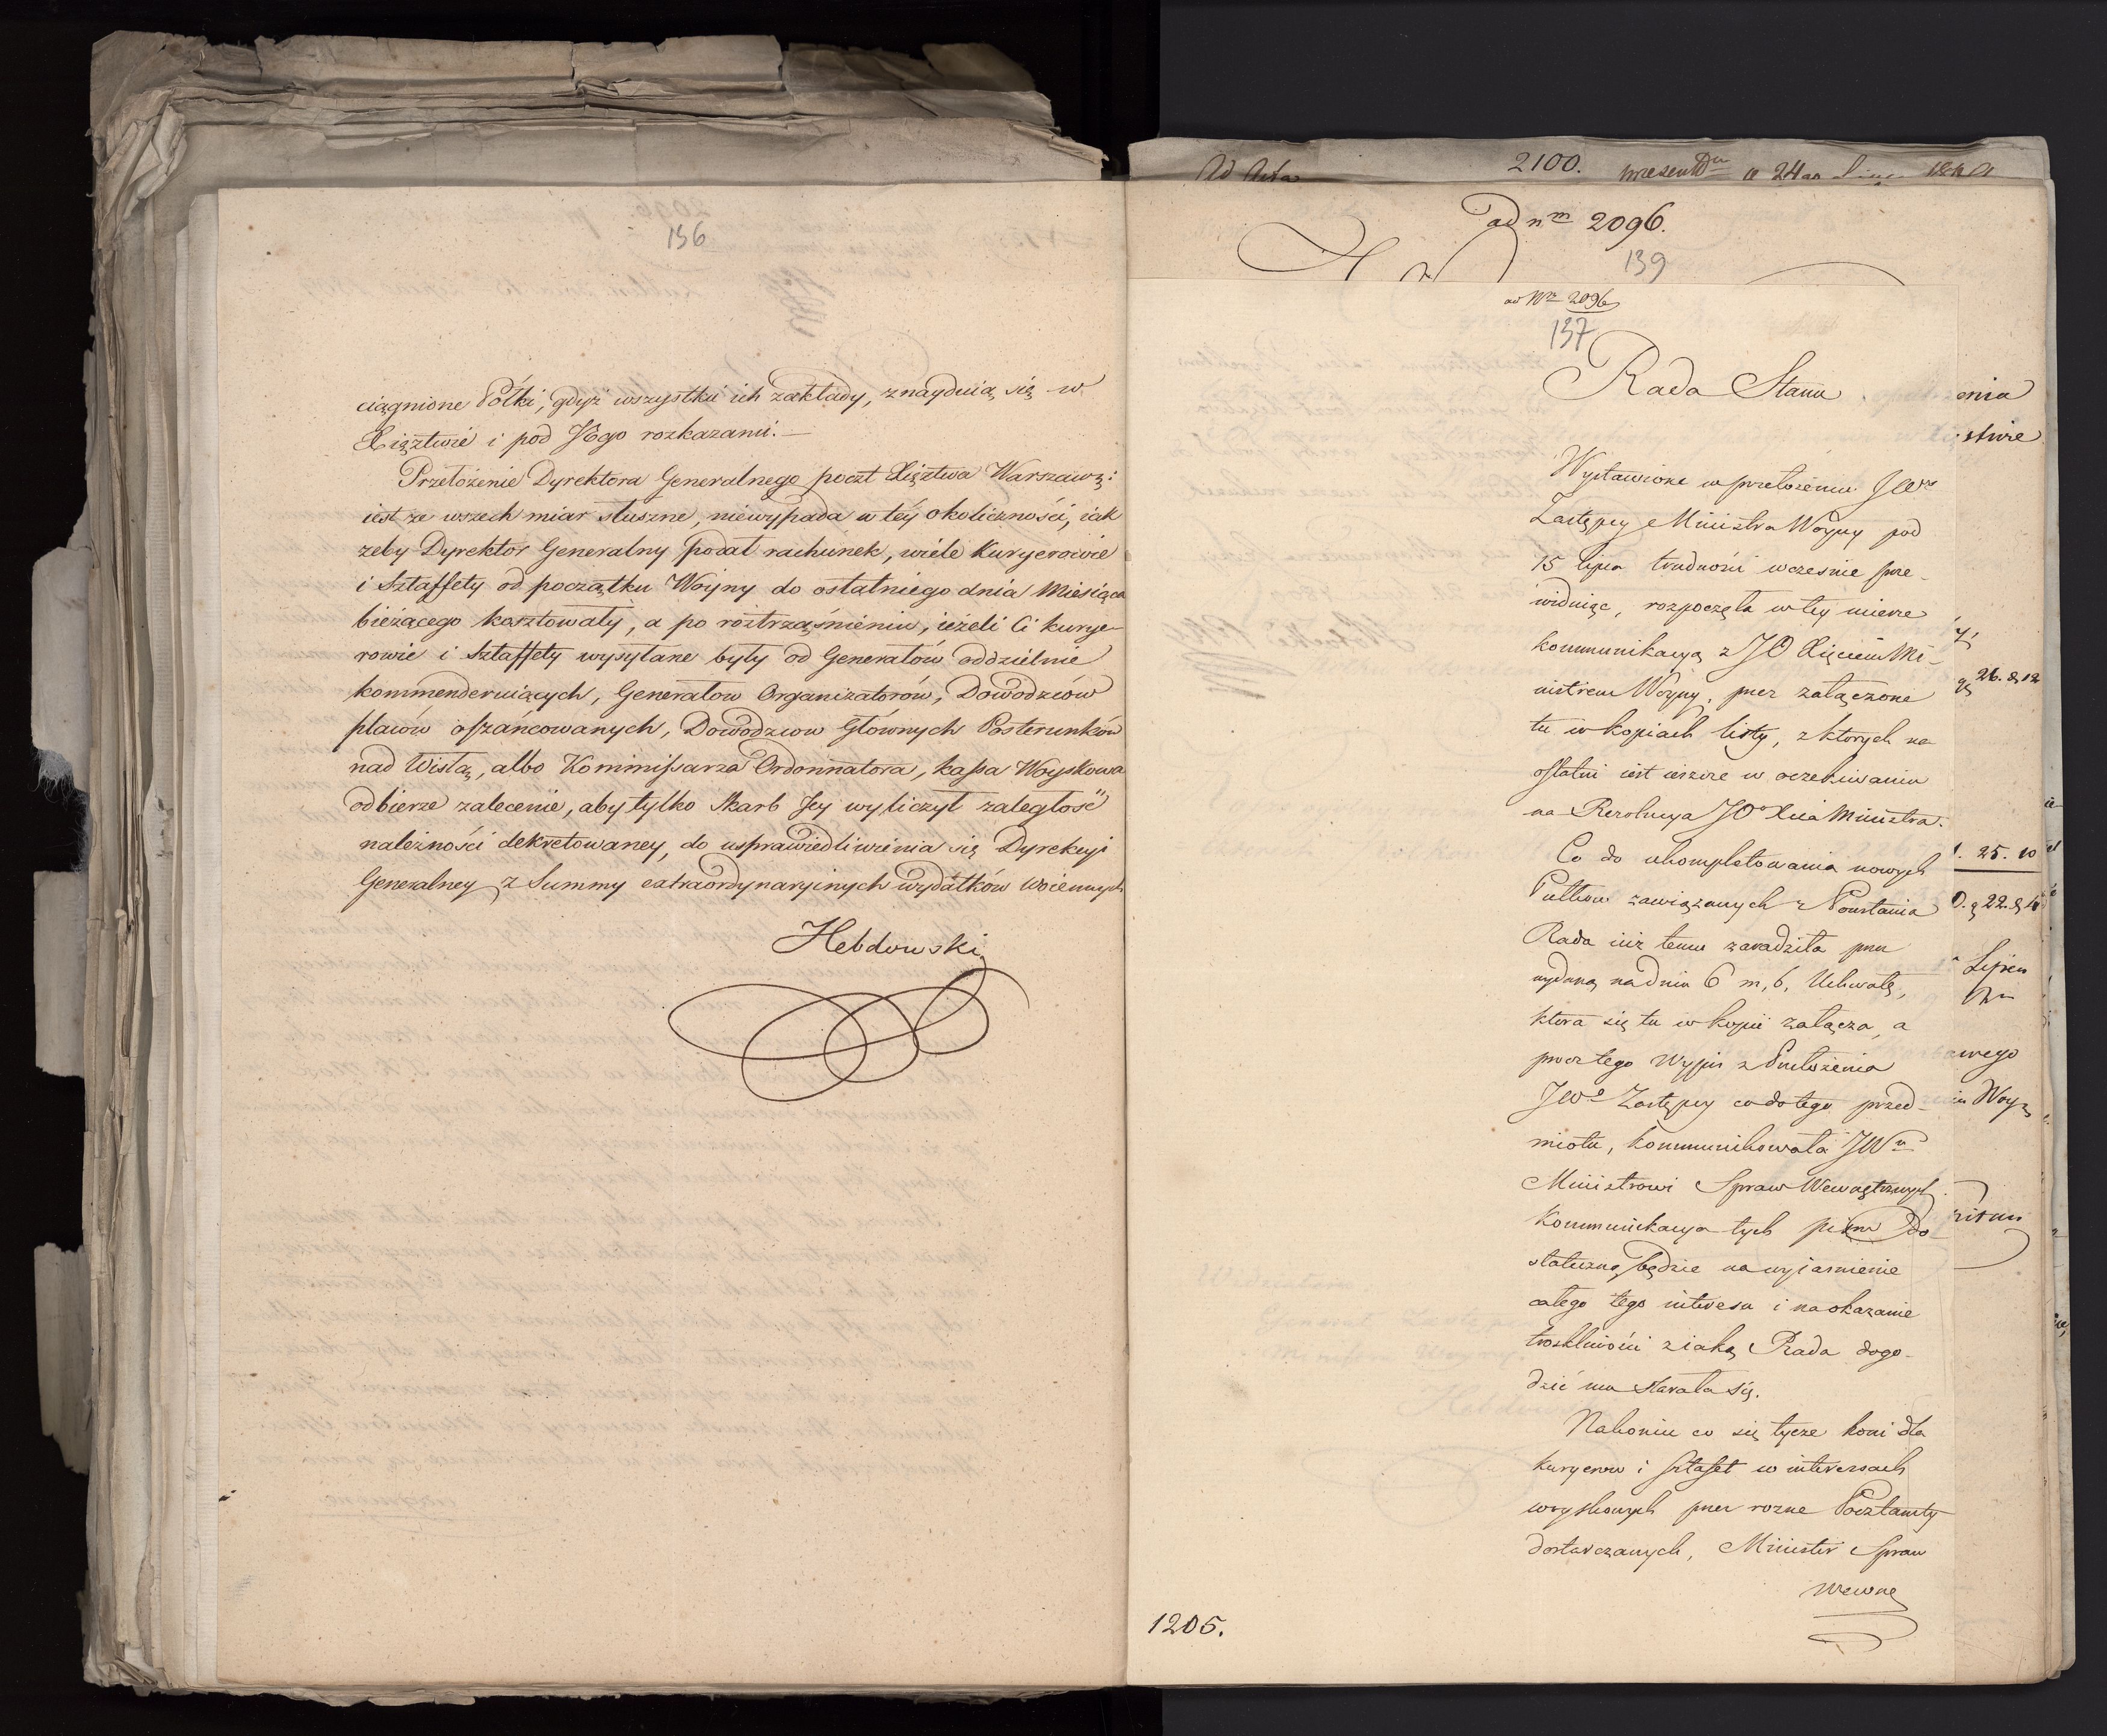 136
ciągnione Półki, gdyż wszystkie ich zakłady, znayduią się w
Xięztwie i pod JEgo rozkazami.—
Przełożenie Dyrektora Generalnego poczt Xięztwa Warszawz:
iest ze wszech miar słuszne, niewypada w téy okoliczności, iak
zeby Dyrektor Generalny podał rachunek, wiéle Kuryerowie
i Sztaffety od początku Woyny do ostatniego dnia Miesiąca
bieżącego kosztowały, a po roztrząśnieniu, ieżeli Ci kurye-
rowie i Sztaffety wysyłane były od Generałów oddzielnie
kommenderuiących, Generałow Organizatorów, Dowodzców
placów oszańcowanych, Dowodzcow Głównych Posterunków
nad Wisłą, albo Kommissarza Ordonnatora, kassa Woyskowa
odbierze zalecenie, aby tylko Skarb Jey wyliczył zaległość
należności dekretowaney, do usprawiedliwienia się Dyrekcyi
Generalney z Summy extraordynaryinych wydatków woiennych
Hebdowski
Ad Acta
2100.
ad nm 2096.
139
ad Nm 2096
137
Rada Stanu
Wystawione w przełożeniu JWo
Zastępcy Ministra Woyny pod
15 lipca trudności wcześnie prze-
widuiąc, rozpoczęła w tey mierze
kommunikacyą z JO Xięciem Mi-
nistrem Woyny, przez załączone
tu w kopiach listy, z ktorych na
ostatni iest ieszcze w oczekiwaniu
na Rezolucyą JOo Xcia Ministra.
Co do ukompletowania nowych
Pułkow zawiązanych z Powstania
Rada iuż temu zaradziła przez
wydaną na dniu 6 m, b, Uchwałę,
ktora się tu w kopii załącza, a
procz tego Wypis z Przełożenia
JWo Zastępcy co do tego przed-
miotu, kommunikowała JWu
Ministrowi Spraw Wewnętrznych
Kommunikacya tych pism do
stateczną będzie na wyiasnienie
całego tego interesu i na okazanie
troskliwości z iaką Rada dogo-
dzić mu starała się.
Nakoniec co się tycze koni dla
kuryerow i sztafet w interesach
woyskowych przez rozne Pocztamty
dostarczanych, Minister Spraw
wewnę
1205.
enia
stwie
26. & 12
1. 25. 10
22. & 10
Lipca
awego
Woy